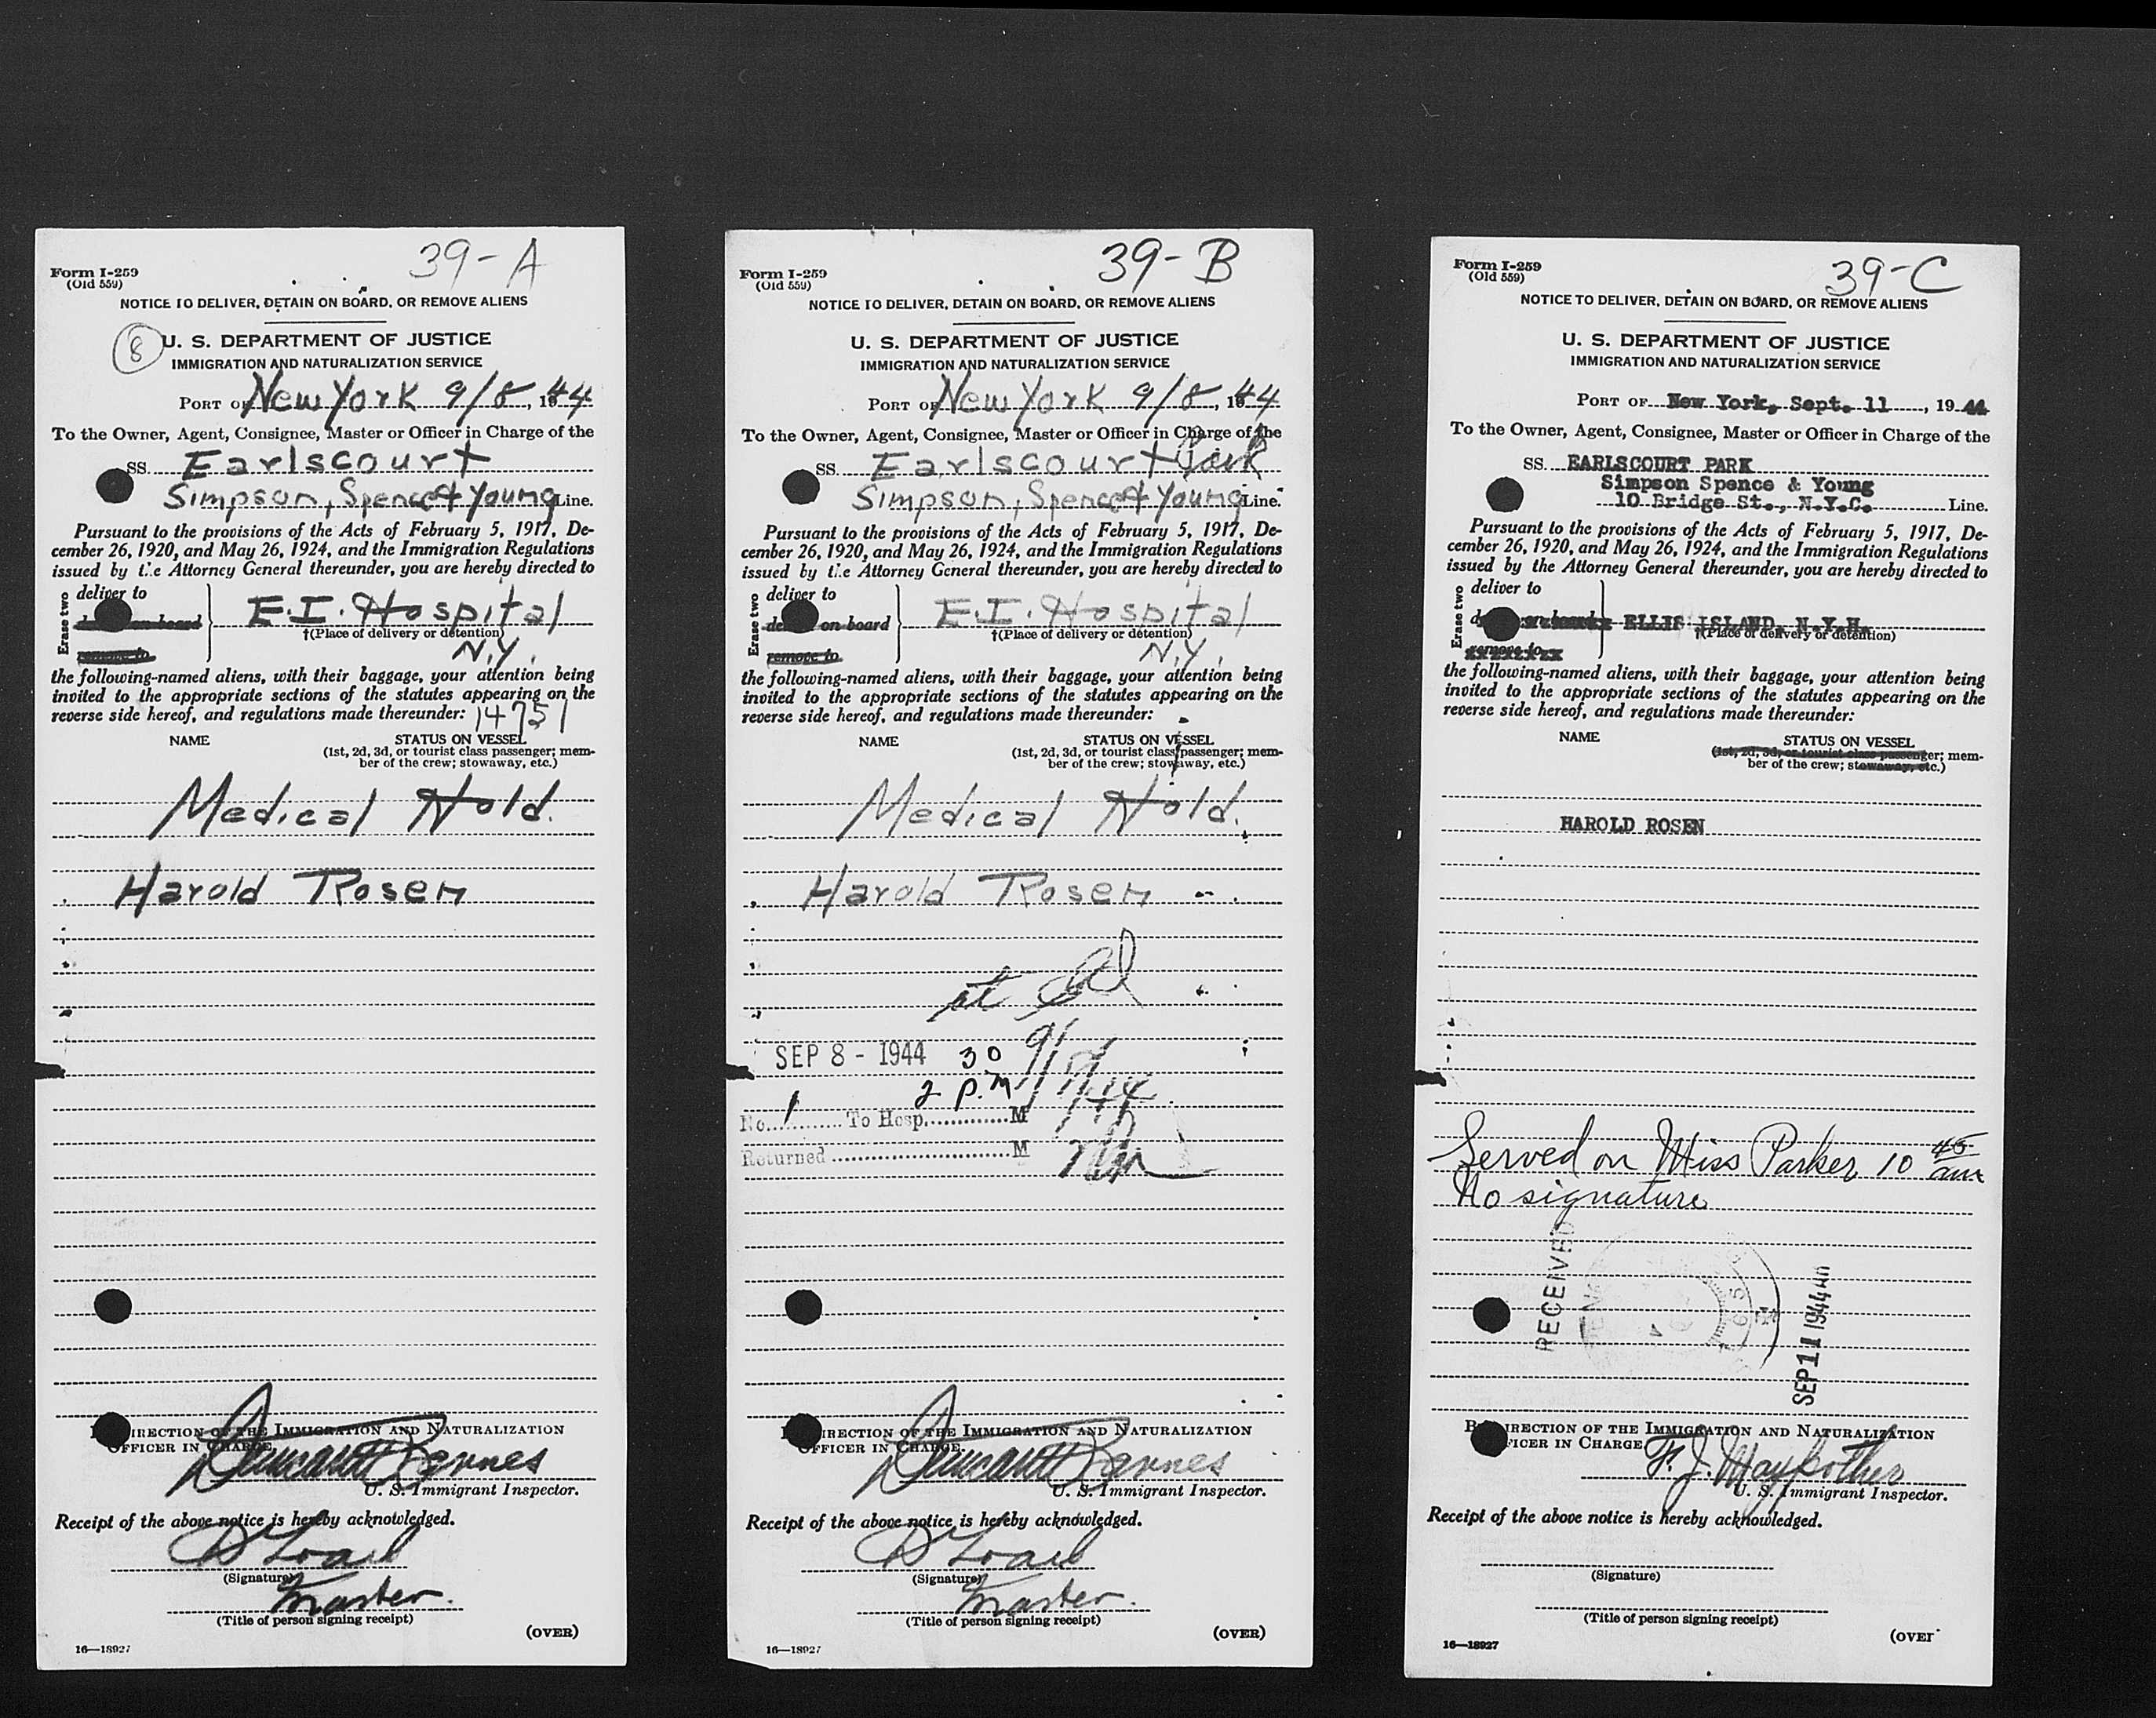 39-A
Form I-259
(Old 559)
NOTICE TO DELIVER, DETAIN ON BOARD, OR REMOVE ALIENS
8
U. S. DEPARTMENT OF JUSTICE
IMMIGRATION AND NATURALIZATION SERVICE
PORT OF New York 9/8, 1944
To the Owner, Agent, Consignee, Master or Officer in Charge of the
SS. Earlscourt
Simpson, Spence & Young Line.
Pursuant to the provisions of the Acts of February 5, 1917, De-
cember 26, 1920, and May 26, 1924, and the Immigration Regulations
issued by the Attorney General thereunder, you are hereby directed to
Erase two
deliver to
on board
remove to
E.I. Hospital
†(Place of delivery or detention)
N.Y.
the following-named aliens, with their baggage, your attention being
invited to the appropriate sections of the statutes appearing on the
reverse side hereof, and regulations made thereunder: 14751
NAME STATUS ON VESSEL
(1st, 2d, 3d, or tourist class passenger; mem-
ber of the crew; stowaway, etc.)
Medical Hold.
Harold Rosen
DIRECTION OF THE IMMIGRATION AND NATURALIZATION
OFFICER IN CHARGE
U. S. Immigrant Inspector.
Receipt of the above notice is hereby acknowledged.
(Signature)
Master.
(Title of person signing receipt)
(OVER)
16—18927
39-B
Form I-259
(Old 559)
NOTICE TO DELIVER, DETAIN ON BOARD, OR REMOVE ALIENS
U. S. DEPARTMENT OF JUSTICE
IMMIGRATION AND NATURALIZATION SERVICE
PORT OF New York 9/8, 1944
To the Owner, Agent, Consignee, Master or Officer in Charge of the
SS. Earlscourt Park
Simpson, Spence & Young Line.
Pursuant to the provisions of the Acts of February 5, 1917, De-
cember 26, 1920, and May 26, 1924, and the Immigration Regulations
issued by the Attorney General thereunder, you are hereby directed to
Erase two
deliver to
on board
remove to
E.I. Hospital
†(Place of delivery or detention)
N.Y.
the following-named aliens, with their baggage, your attention being
invited to the appropriate sections of the statutes appearing on the
reverse side hereof, and regulations made thereunder:
NAME STATUS ON VESSEL
(1st, 2d, 3d, or tourist class passenger; mem-
ber of the crew; stowaway, etc.)
Medical Hold.
Harold Rosen
SEP 8 - 1944
2 30 P.M
No. 1 To Hosp. M
Returned M
DIRECTION OF THE IMMIGRATION AND NATURALIZATION
OFFICER IN CHARGE
U. S. Immigrant Inspector.
Receipt of the above notice is hereby acknowledged.
(Signature)
Master.
(Title of person signing receipt)
(OVER)
16—18927
39-C
Form I-259
(Old 559)
NOTICE TO DELIVER, DETAIN ON BOARD, OR REMOVE ALIENS
U. S. DEPARTMENT OF JUSTICE
IMMIGRATION AND NATURALIZATION SERVICE
PORT OF New York, Sept. 11, 1944
To the Owner, Agent, Consignee, Master or Officer in Charge of the
SS. EARLSCOURT PARK
Simpson Spence & Young
10 Bridge St., N.Y.C. Line.
Pursuant to the provisions of the Acts of February 5, 1917, De-
cember 26, 1920, and May 26, 1924, and the Immigration Regulations
issued by the Attorney General thereunder, you are hereby directed to
Erase two
deliver to
remove to
ELLIS ISLAND, N.Y.H.
†(Place of delivery or detention)
the following-named aliens, with their baggage, your attention being
invited to the appropriate sections of the statutes appearing on the
reverse side hereof, and regulations made thereunder:
NAME STATUS ON VESSEL
(1st, 2d, 3d, or tourist class passenger; mem-
ber of the crew; stowaway, etc.)
HAROLD ROSEN
Served on Miss Parker 10 45 am
No signature
RECEIVED
SEP 11 1944
DIRECTION OF THE IMMIGRATION AND NATURALIZATION
OFFICER IN CHARGE
U. S. Immigrant Inspector.
Receipt of the above notice is hereby acknowledged.
(Signature)
(Title of person signing receipt)
(OVER
16—18927